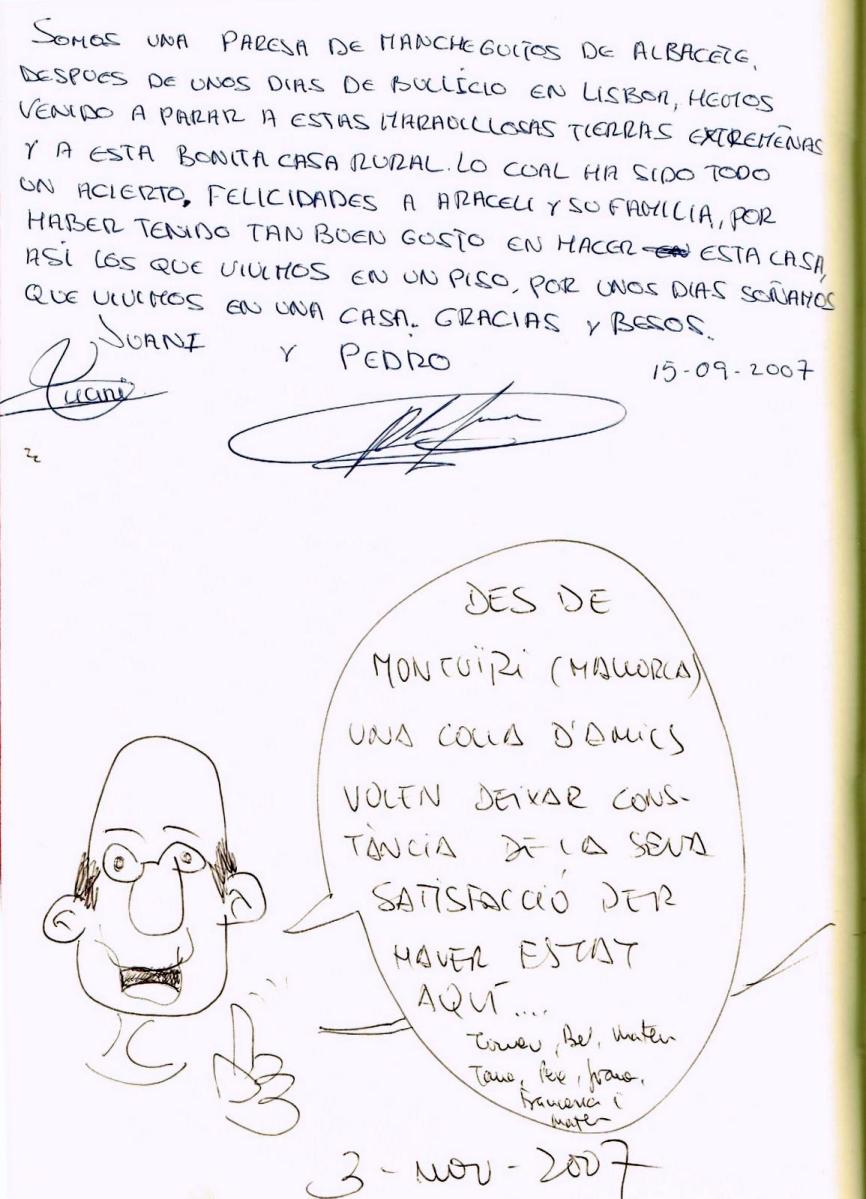 SOMOS UNA PAREJA DE MANCHEGUITOS DE ALBACETE,
DESPUES DE UNOS DIAS DE BULLICIO EN LISBOA, HEMOS
VENIDO A PARAR A ESTAS MARAVILLOSAS TIERRAS EXTREMEÑAS
Y A ESTA BONITA CASA RURAL. LO CUAL HA SIDO TODO
UN ACIERTO, FELICIDADES A ARACELI Y SU FAMILIA, POR
HABER TENIDO TAN BUEN GUSTO EN HACER ESTA CASA,
ASÍ LOS QUE VIVIMOS EN UN PISO, POR UNOS DIAS SOÑAMOS
QUE VIVIMOS EN UNA CASA. GRACIAS Y BESOS.
JUANI Y PEDRO
15-09-2007
Juani
DES DE
MONTUÏRI (MALLORCA)
UNA COLLA D'AMICS
VOLEN DEIXAR CONS-
TÀNCIA DE LA SEVA
SATISFACCIÓ PER
HAVER ESTAT
AQUÍ....
Tomeu, Bel, Mateu
Pere, Joana,
Francesca i
3-NOV-2007